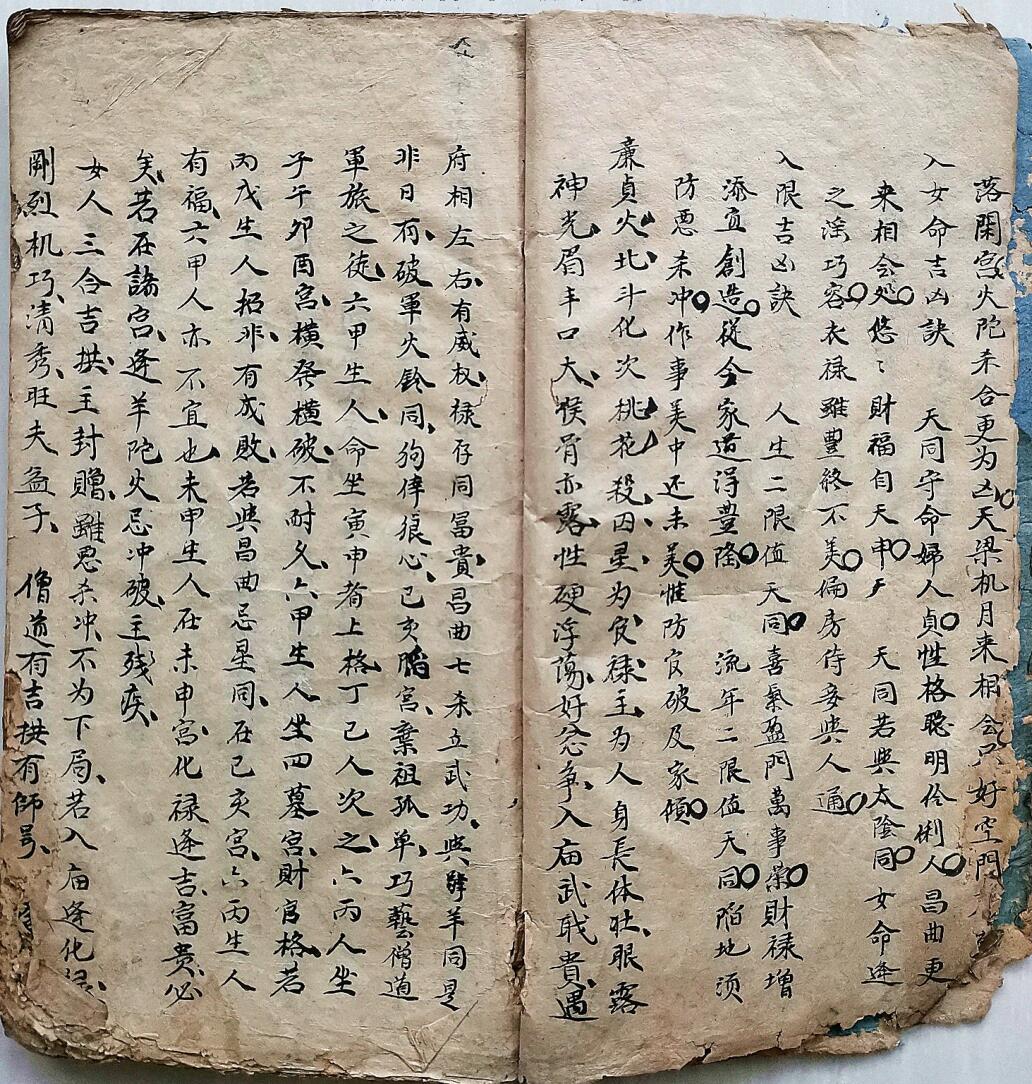 落閑宮火陀杀合更为凶天梁机月来相会只好空門
入女命吉凶訣 天同守命婦人貞性格聪明伶俐人昌曲更
来相会处悠〻財福自天申 天同若與太陰同女命逢
之淫巧容衣禄雖豐終不美偏房侍妾與人通
入限吉凶訣 人生二限值天同喜氣盈門萬事荣財禄增
添宜創造從今家道淂豊隆 流年二限值天同陷地须
防恶杀冲作事美中还未美惟防官破及家傾
廉貞火北斗化次桃花殺囚星为官禄主为人身長体壮眼露
神光眉丰口大喉骨亦露性硬浮蕩好忿争入庙武职貴遇
府相左右有威权禄存同富貴昌曲七杀立武功與擎羊同是
非日有破軍火鈴同狗倖狼心已亥陷宮棄祖孤单巧藝僧道
軍旅之徒六甲生人命坐寅申者上格丁己人次之六丙人坐
子午卯酉宮横發横破不耐久六甲生人坐四墓宮財官格若
丙戊生人招非有成敗若與昌曲忌星同在已亥宮六丙生人
有福六甲人亦不宜也未甲生人在未申宮化禄逢吉富贵必
矣若在諸宮逢羊陀火忌冲破主残疾
女人三合吉拱主封贈雖恶杀冲不为下局若入庙逢化禄
剛烈机巧清秀旺夫益子 僧道有吉拱有師号